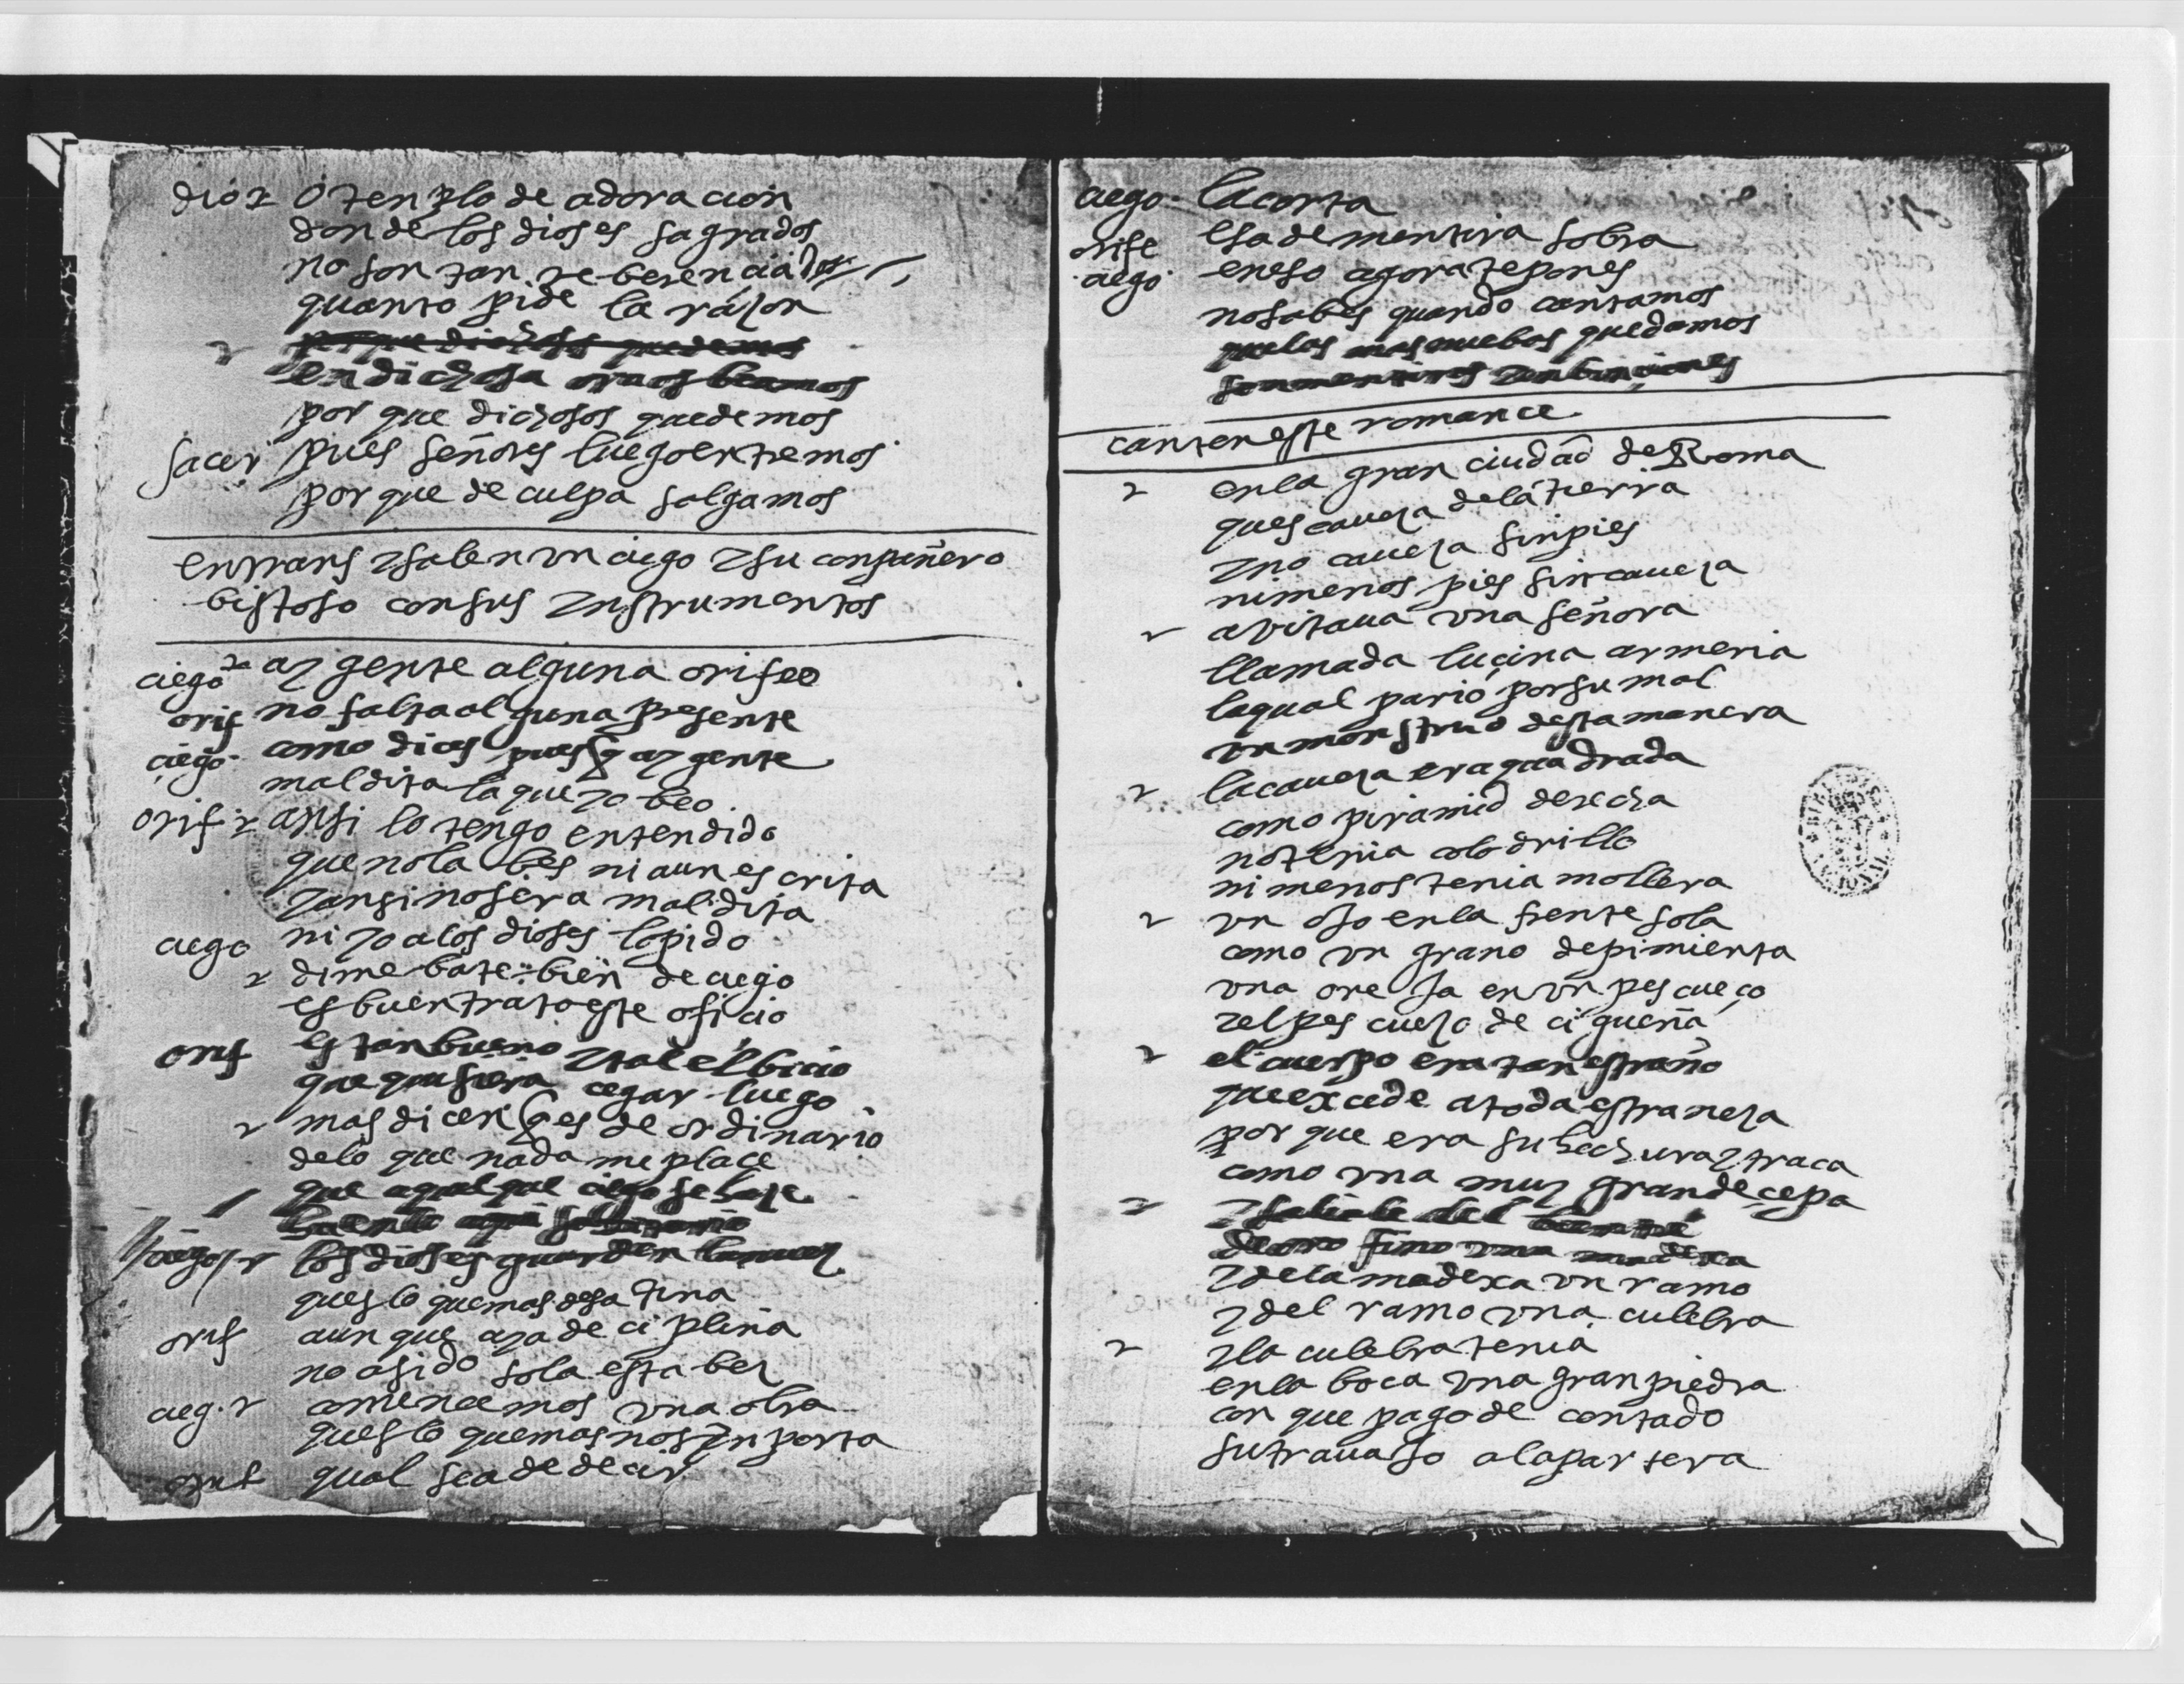 dioz O tenplo de adoracion
donde los dioses sagrados
no son tan reberenciados
quanto pide la razon
porque dichosos quedemos
en dichosa
por que dichosos quedemos
sacer pues señores luego entremos
por que de culpa salgamos
entranse y salen un ciego y su conpañero
bistoso con sus ynstrumentos
ciego ay gente alguna orifeo
orif no falta alguna presente
ciego como dices pues q ay gente
maldita la que yo beo
orif ansi lo tengo entendido
que no la bes ni aun escrita
y ansi no sera maldita
ciego ni yo a los dioses lo pido
dime bate bien de ciego
es buen trato este oficio
orif es tan bueno y tal el bicio
que quisiera cegar luego
mas dicen q es de ordinario
de lo que nada me place
que aquel que ciego se haze
ciego los dioses guarden
ques lo que mas desatina
orif aunque aya deciplina
no a sido sola esta bez
cieg. comencemos una obra
ques lo que mas nos ynporta
orif qual sea de decir
ciego la corta
orife esa de mentira sobra
ciego en eso agora te pones
no sabes quando cantamos
que las mas nuebas quedamos
son mentiras
canten este romance
en la gran ciudad de Roma
ques caueza de la tierra
y no caueza sin pies
ni menos pies sin caueza
auitaua una señora
llamada luçina armenia
la qual pario por su mal
un monstruo desta manera
la caueza era quadrada
como piramid derecha
no tenia colodrillo
ni menos tenia mollera
un ojo en la frente sola
como un grano de pimienta
una oreja en un pescueço
y el pescuezo de cigueña
el cuerpo era tan estraño
que excede a toda estraneza
por que era su hechura y traca
como una muy grande çepa
y saliale del
de oro fino una madexa
y de la madexa un ramo
y del ramo una culebra
y la culebra tenia
en la boca una gran piedra
con que pago de contado
su trauajo a la partera